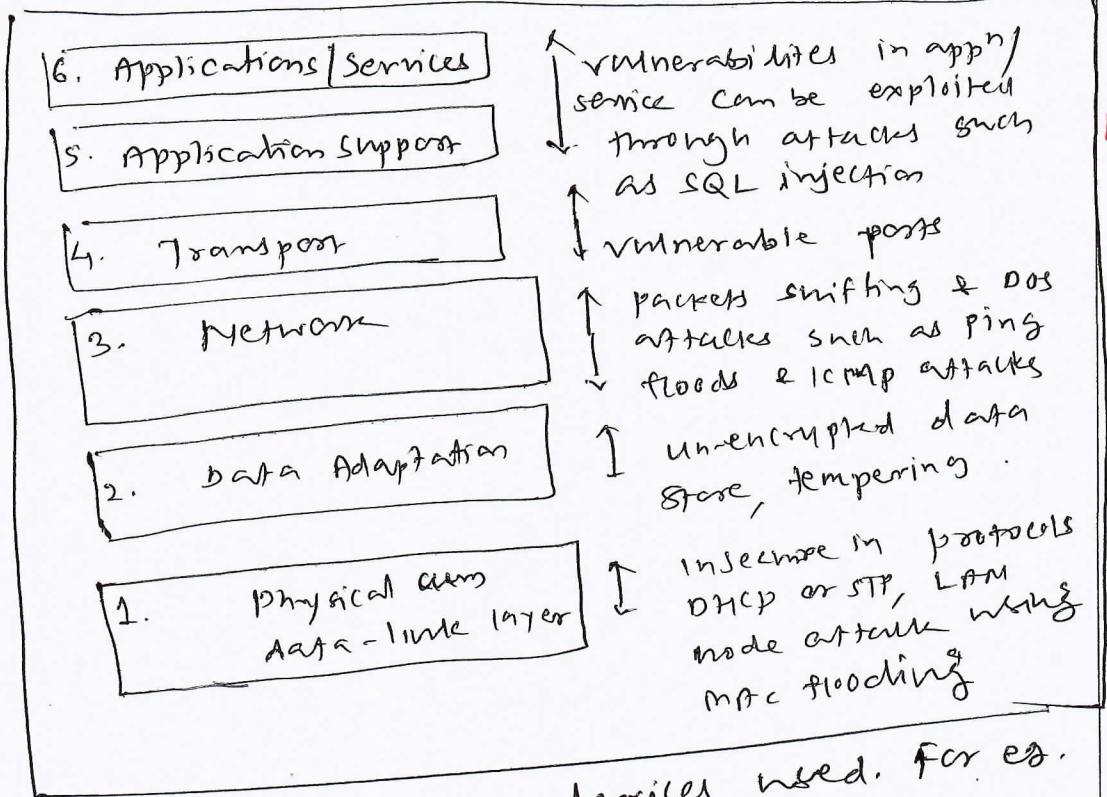 6. Applications/Services
5. Application Support
4. Transport
3. Network
2. Data Adaptation
1. Physical cum
data-link layer
vulnerabilites in appn/
service can be exploited
through attacks such
as SQL injection
vulnerable ports
packets sniffing & DOS
attacks such as ping
floods & ICMP attacks
un-encrypted data
store, tempering.
Insecure in protocols
DHCP or STP, LAN
node attack using
MAC flooding
devices used. For eg.